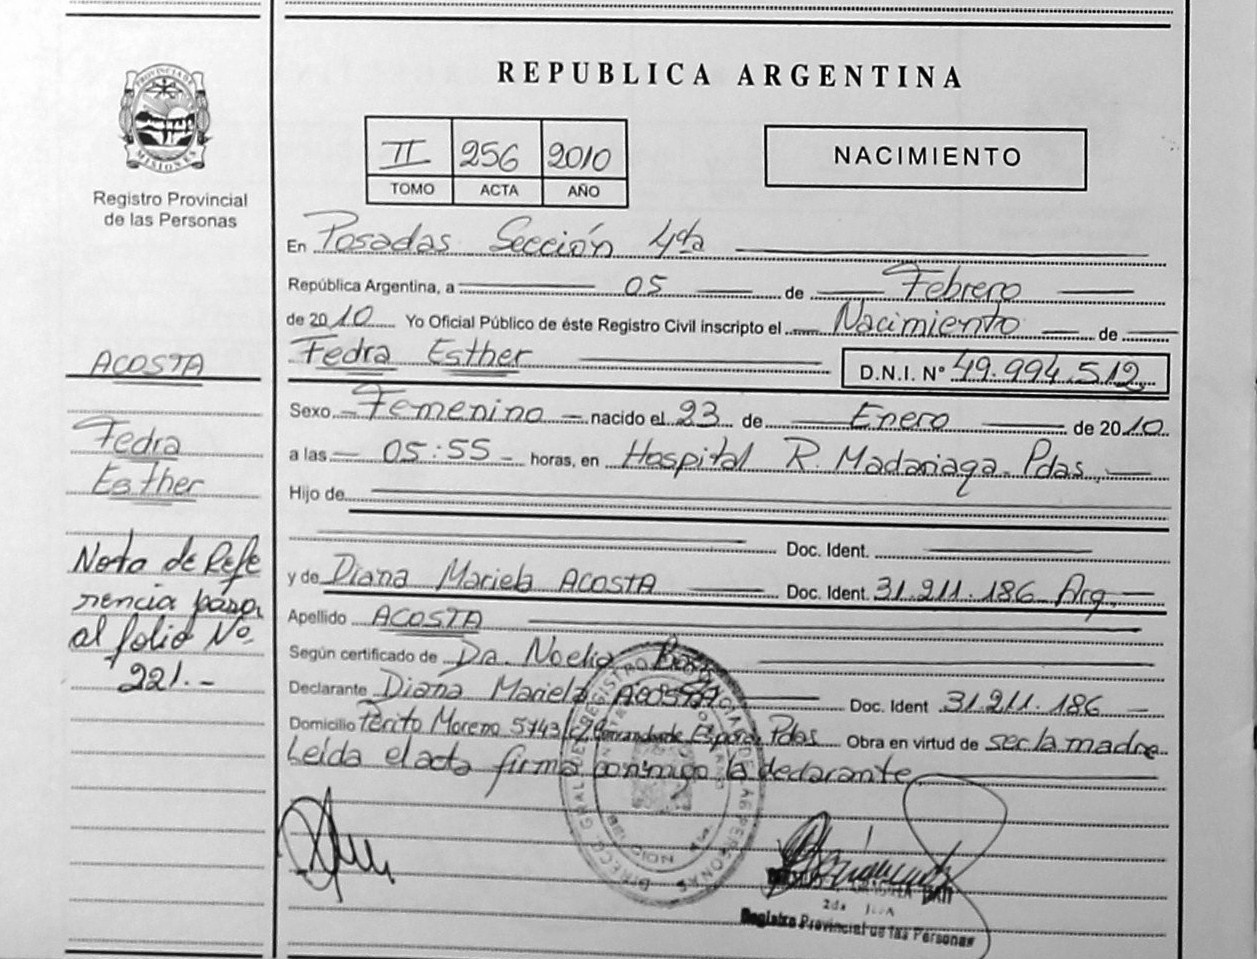 REPUBLICA ARGENTINA
PROVINCIA DE MISIONES
Registro Provincial
de las Personas
II 256 2010
TOMO ACTA AÑO
NACIMIENTO
En Posadas Sección 4ta
República Argentina, a 05 de Febrero
de 2010 Yo Oficial Público de éste Registro Civil inscripto el Nacimiento de
Fedra Esther D.N.I. Nº 49.994.512
ACOSTA
Fedra
Esther
Nota de Refe
rencia pasa
al folio Nº
221.-
Sexo Femenino nacido el 23 de Enero de 2010
a las 05:55 horas, en Hospital R. Madariaga. Pdas.
Hijo de
Doc. Ident.
y de Diana Mariela ACOSTA Doc. Ident. 31.211.186 Arg.
Apellido ACOSTA
Según certificado de Dra. Noelia
Declarante Diana Mariela ACOSTA Doc. Ident 31.211.186
Domicilio Perito Moreno 5743 Pdas Obra en virtud de ser la madre
Leída el acta firma conmigo la declarante
2da
Registro Provincial de las Personas